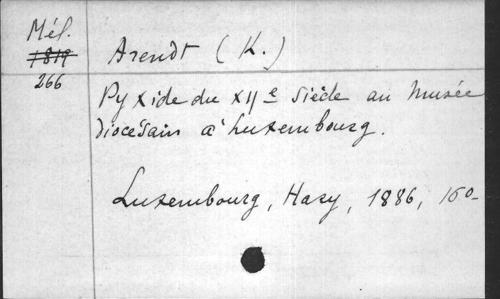 Mél.
1819
266
Arendt (K.)
Pyxide du XIIe Siècle au Musée
diocésain à Luxembourg.
Luxembourg, Hary, 1886, 16o-